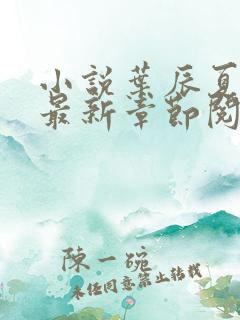 小說葉辰夏
最新章節閱
陳一碗
未经同意禁止转载